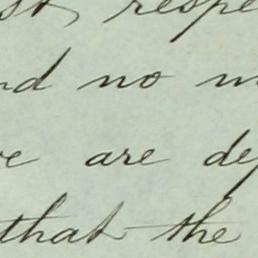 st, respe
nd no m
e are de
that the